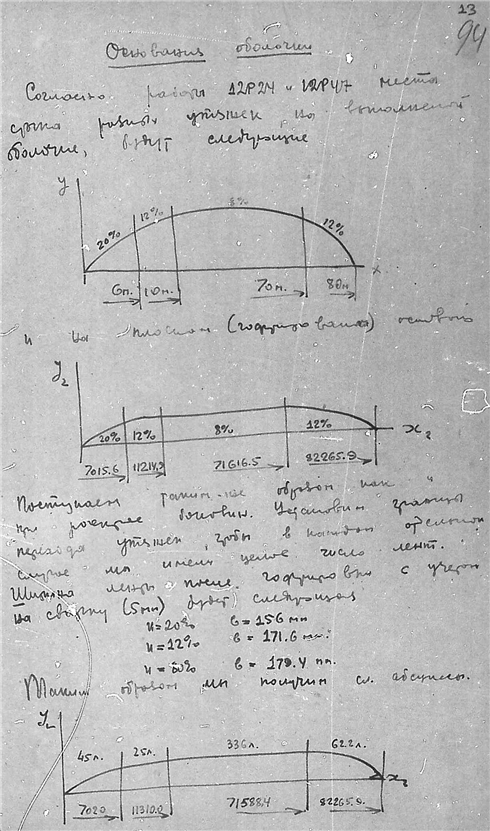 13
94
Основания оболочки
Согласно работы 12Р24 и 12Р47 места
разных утяжек на выполненой
оболочке, будут следующие
y
20% 12% 8% 12%
x
6м. 10м. 70м. 80м
и на плоском (гофрированом)
y₂
20% 12% 8% 12%
x₂
7015.6 11214.9 71616.5 82265.9
Поступаем таким-же образом как и
при раскрое боковин. Установим границы
перехода утяжек, чтобы в каждом отдельном
случае мы имели целое число лент.
Ширина ленты после гофрировки с учетом
на сварку (5мм) будет следующая
и=20% в=156 мм
и=12% в=171.6 мм.
в=179.4 мм.
Таким образом мы получим сл. абсциссы.
y₂
45л. 25л. 336л. 62.2л.
x₂
7020 11310.0 71588.4 82265.9.